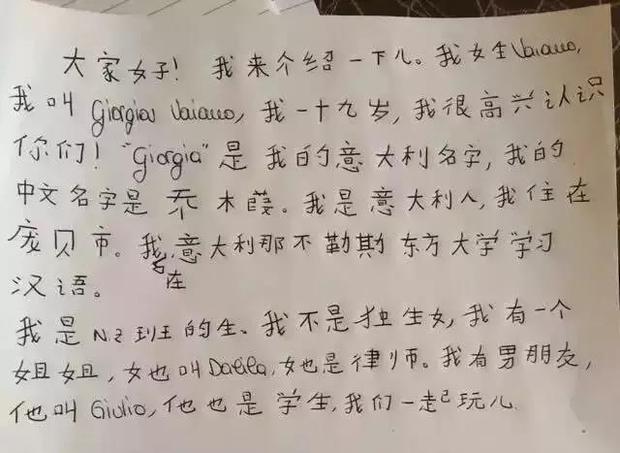 大家好！我来介绍一下儿。我姓Vaiano,
我叫 Giorgia Vaiano, 我一十九岁, 我很高兴认识
你们！"Giorgia"是我的意大利名字, 我的
中文名字是乔木葭。我是意大利人, 我住在
庞贝市。我在意大利那不勒斯东方大学学习
汉语。
我是N2班的生、我不是独生女, 我有一个
姐姐, 她叫Dalila, 她也是律师。我有男朋友,
他叫Giulio, 他也是学生, 我们一起玩儿